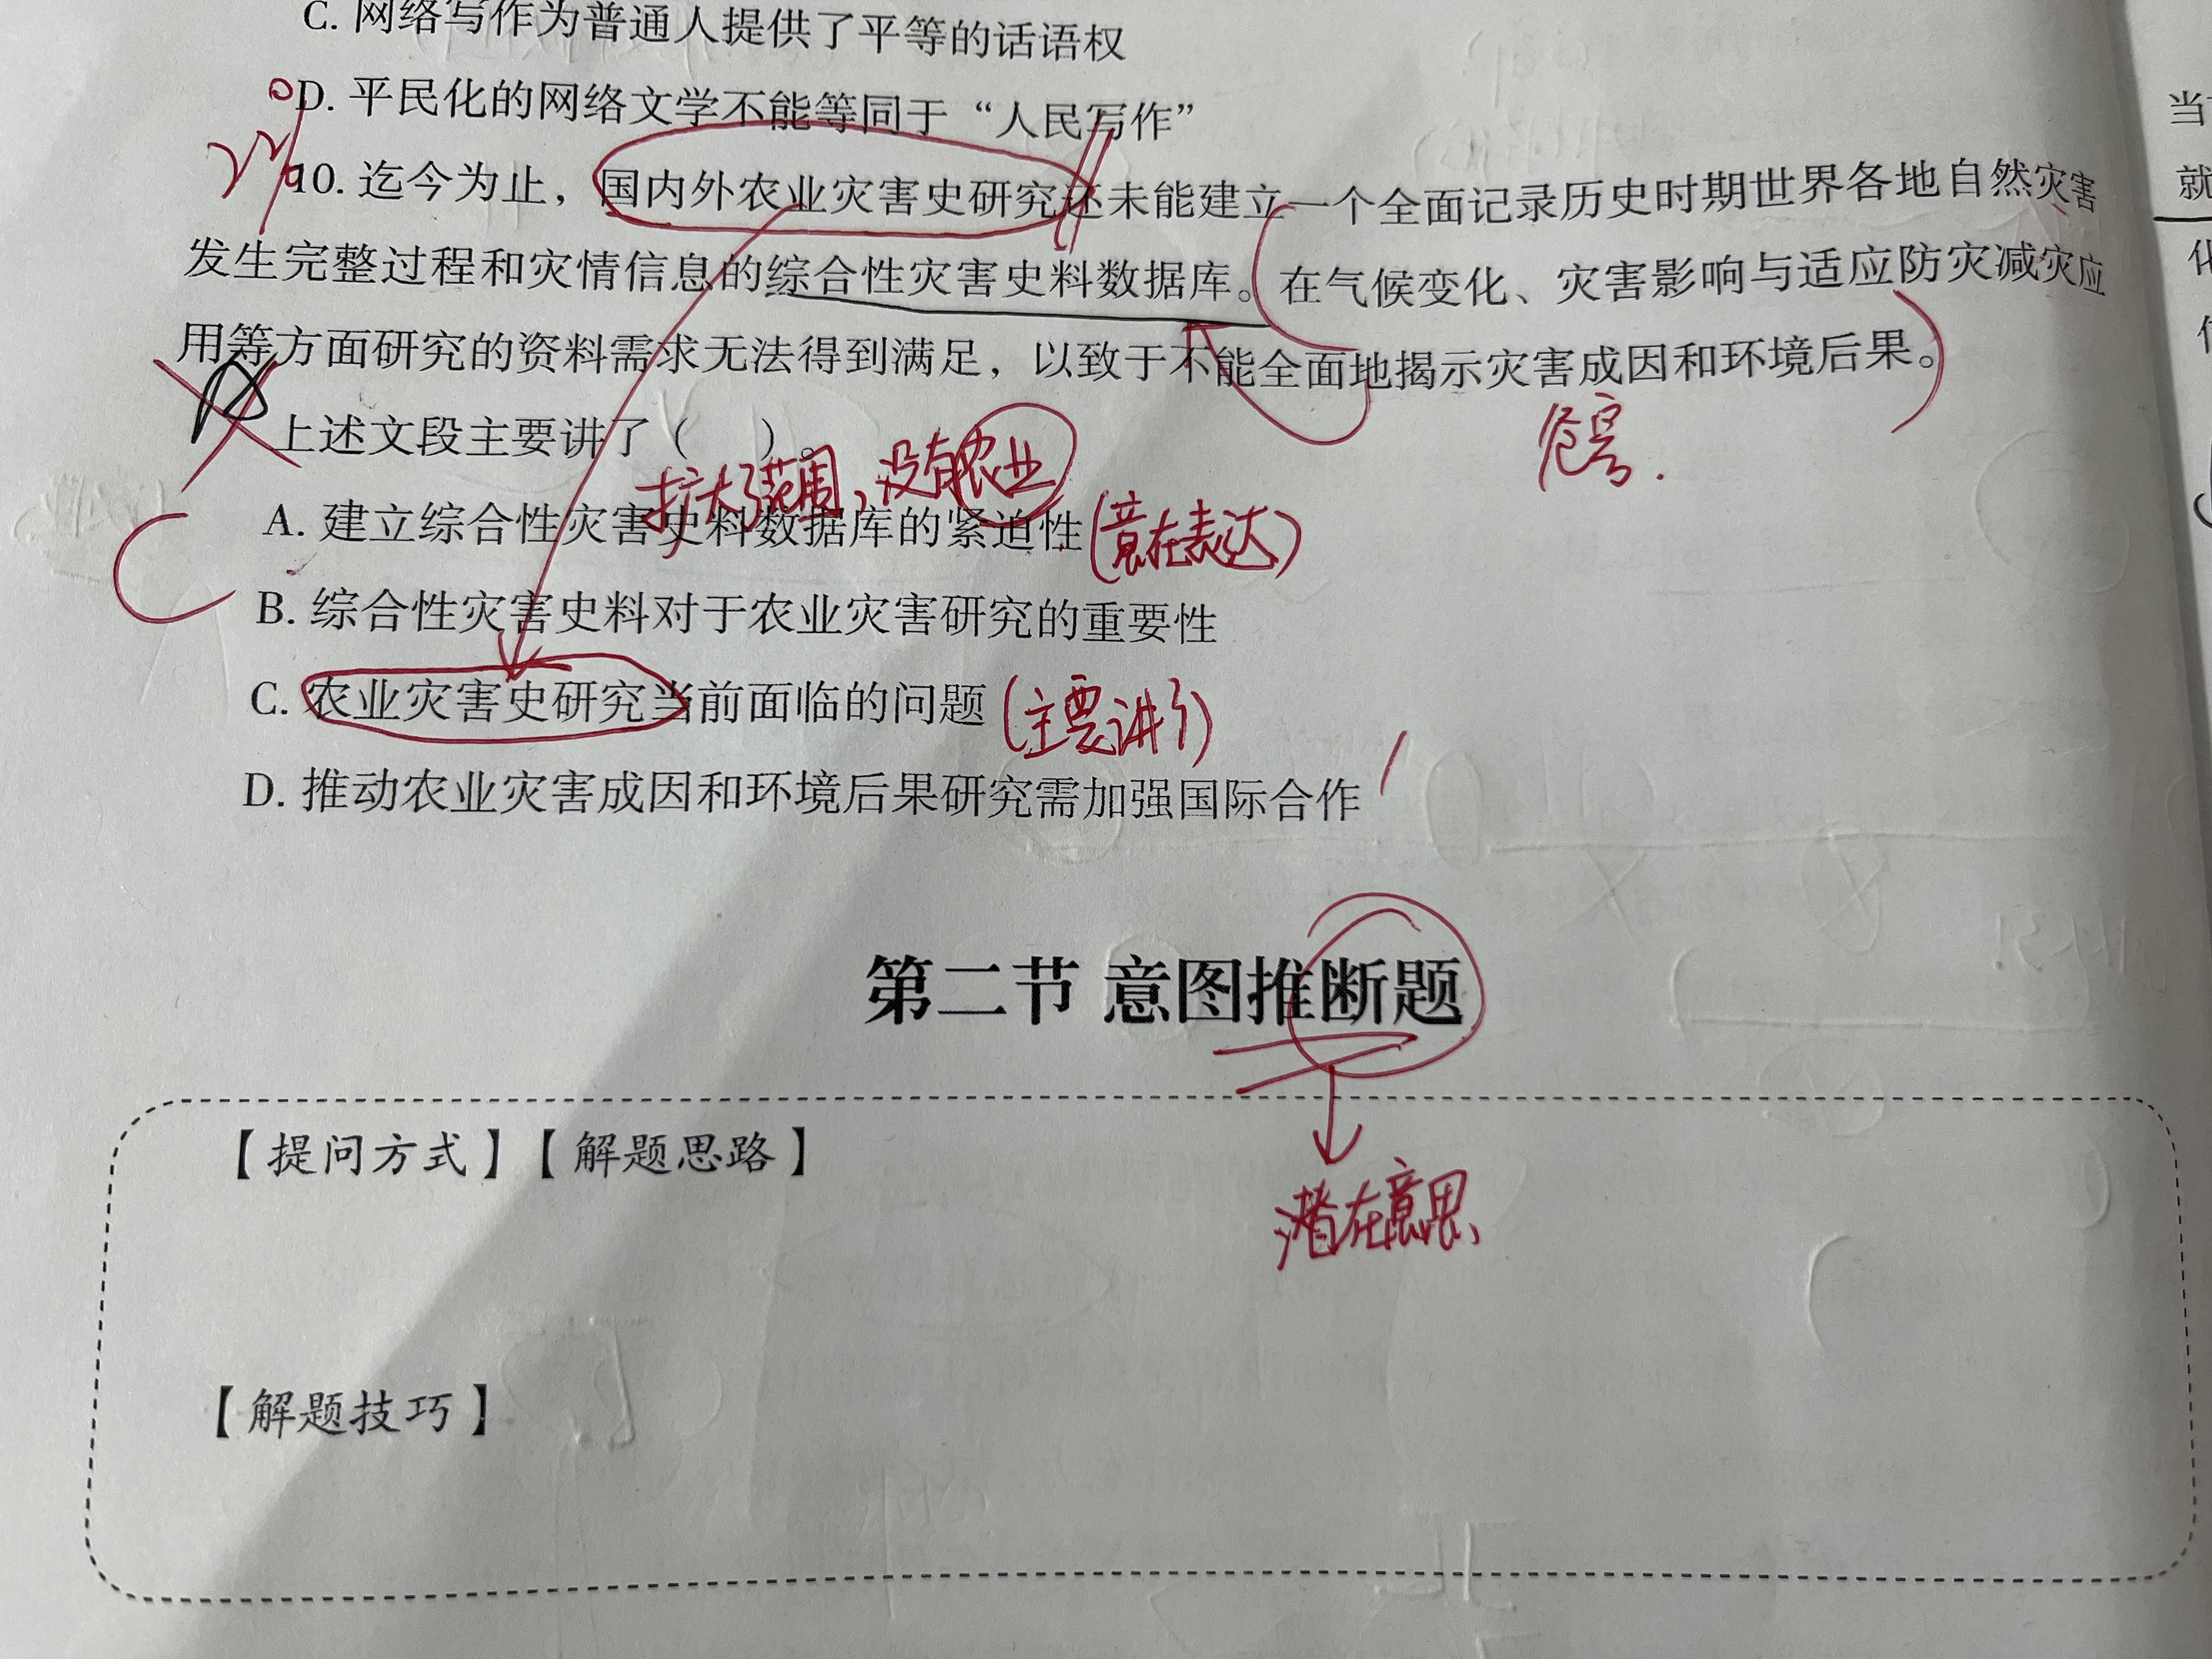 C. 网络写作为普通人提供了平等的话语权
D. 平民化的网络文学不能等同于“人民写作”
10. 迄今为止，国内外农业灾害史研究还未能建立一个全面记录历史时期世界各地自然灾害
发生完整过程和灾情信息的综合性灾害史料数据库。在气候变化、灾害影响与适应防灾减灾应
用等方面研究的资料需求无法得到满足，以致于不能全面地揭示灾害成因和环境后果。
危害.
上述文段主要讲了（　　）。
扩大了范围，没有农业
A. 建立综合性灾害史料数据库的紧迫性(意在表达)
B. 综合性灾害史料对于农业灾害研究的重要性
C
C. 农业灾害史研究当前面临的问题(主要讲了)
D. 推动农业灾害成因和环境后果研究需加强国际合作
第二节 意图推断题
【提问方式】【解题思路】
潜在意思
【解题技巧】
当
就
化